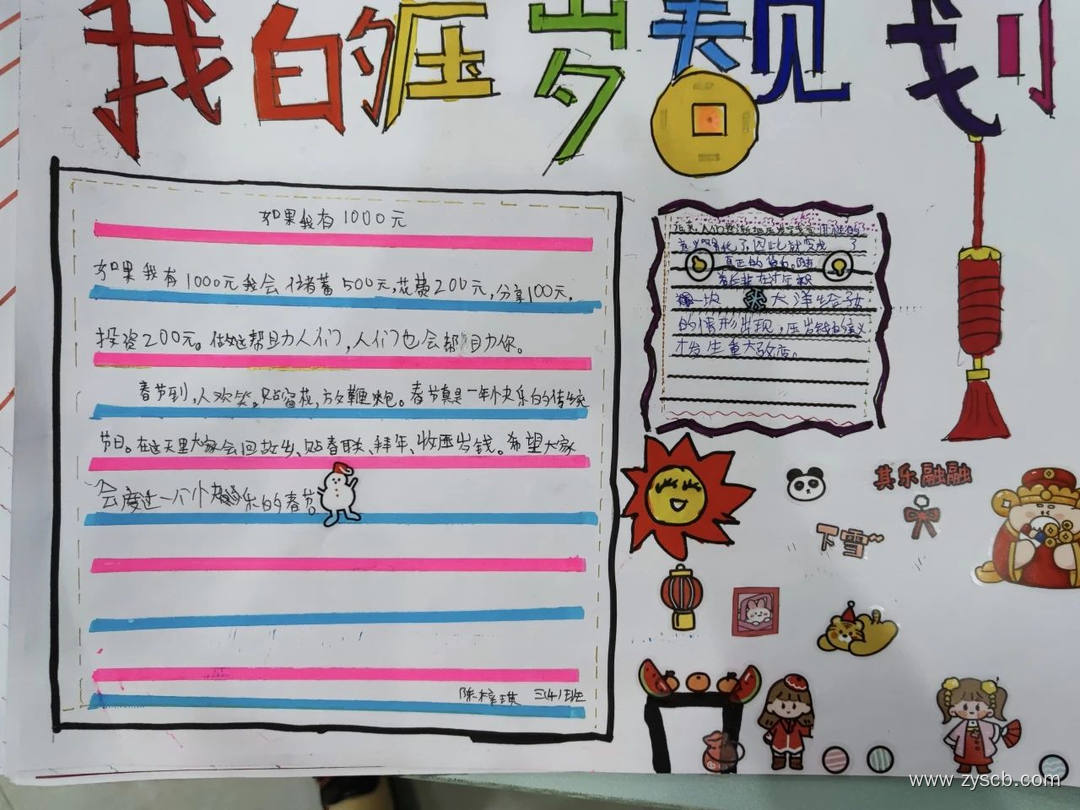 我的压岁规划
如果我有1000元
如果我有1000元我会储蓄500元,花费200元,分享100元,
投资200元。做这帮助人们,人们也会帮助你。
春节到,人欢笑。贴窗花,放鞭炮。春节真是一年个快乐的传统
节日。在这天里大家会回故出、贴春联、拜年、收压岁钱。希望大家
会度过一个个快乐的春节。
陈梓琪 三4班
真正的货币。随
着长辈在过年
一次 大洋给孩
的情形出现,压岁钱的意义
才发生重大改变。
其乐融融
下雪~
www.zyscb.com